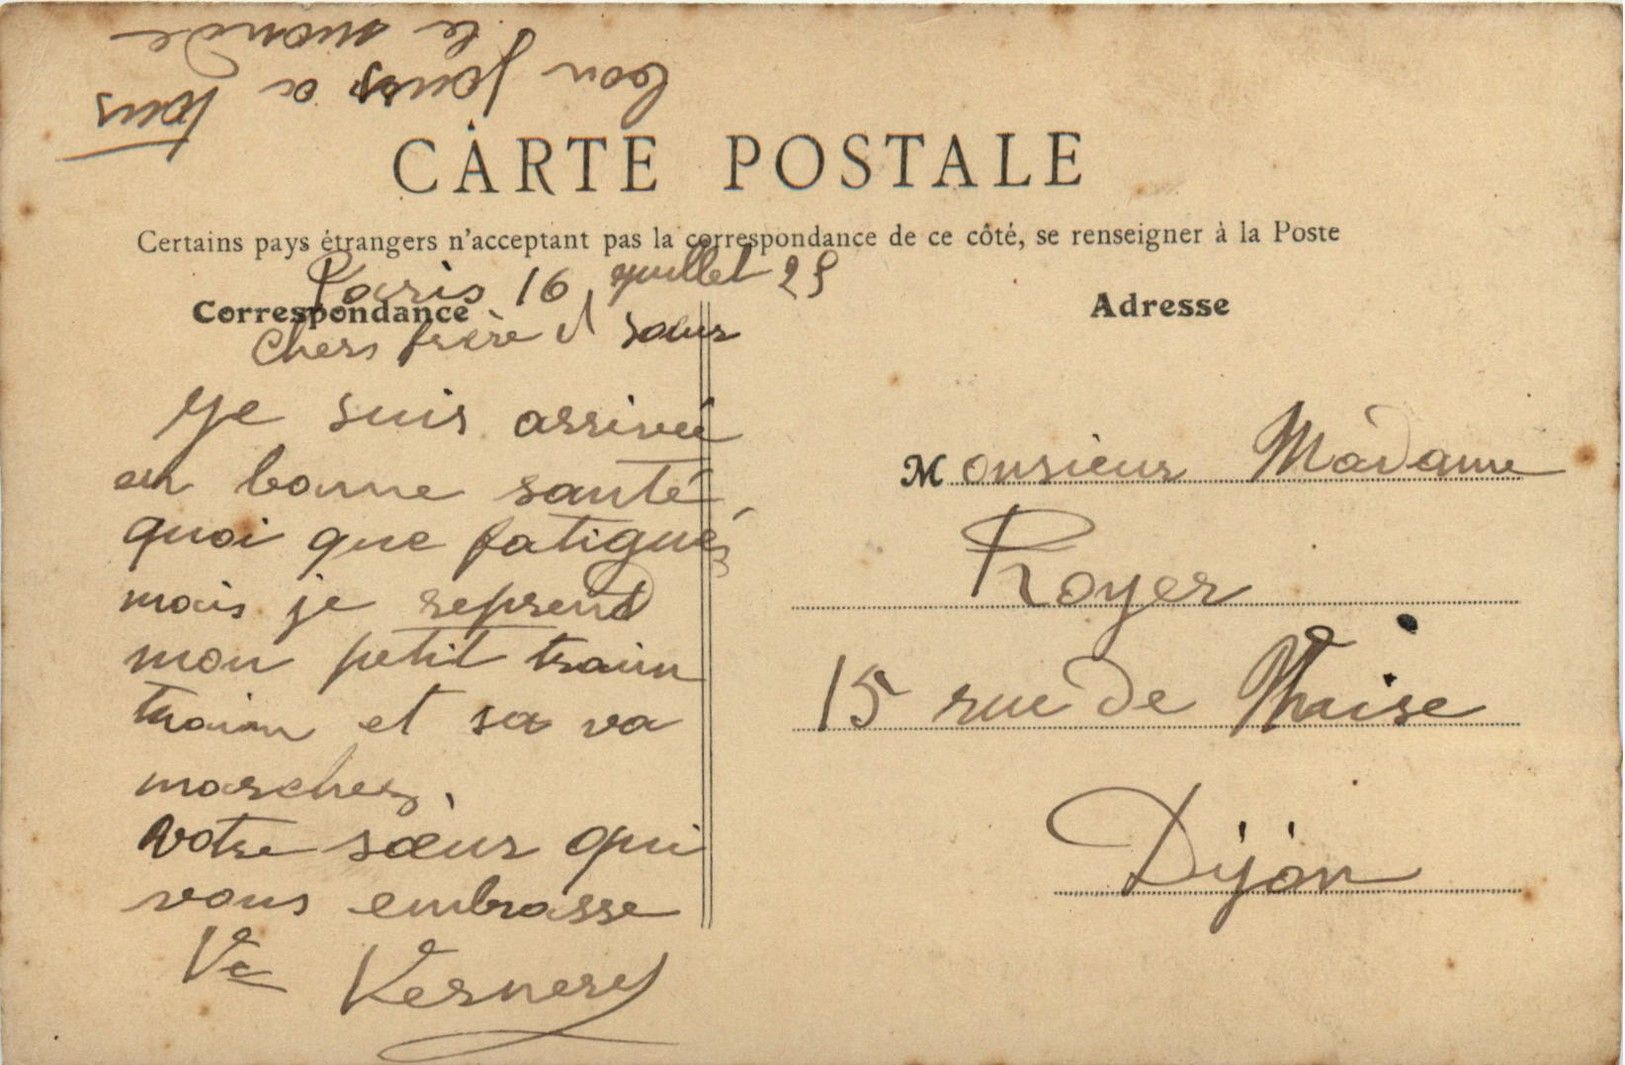 bon jours a tous
le monde
CARTE POSTALE
Certains pays étrangers n'acceptant pas la correspondance de ce côté, se renseigner à la Poste
Paris 16 juillet 25
Correspondance
Adresse
Chers frère et sœur
Je suis arrivée
en bonne santé
quoi que fatiguée
mais je reprend
mon petit train
train et sa va
marchez.
votre sœur qui
vous embrasse
Ve Vernerey
Monsieur Madame
Royer
15 rue de Thaise
Dijon